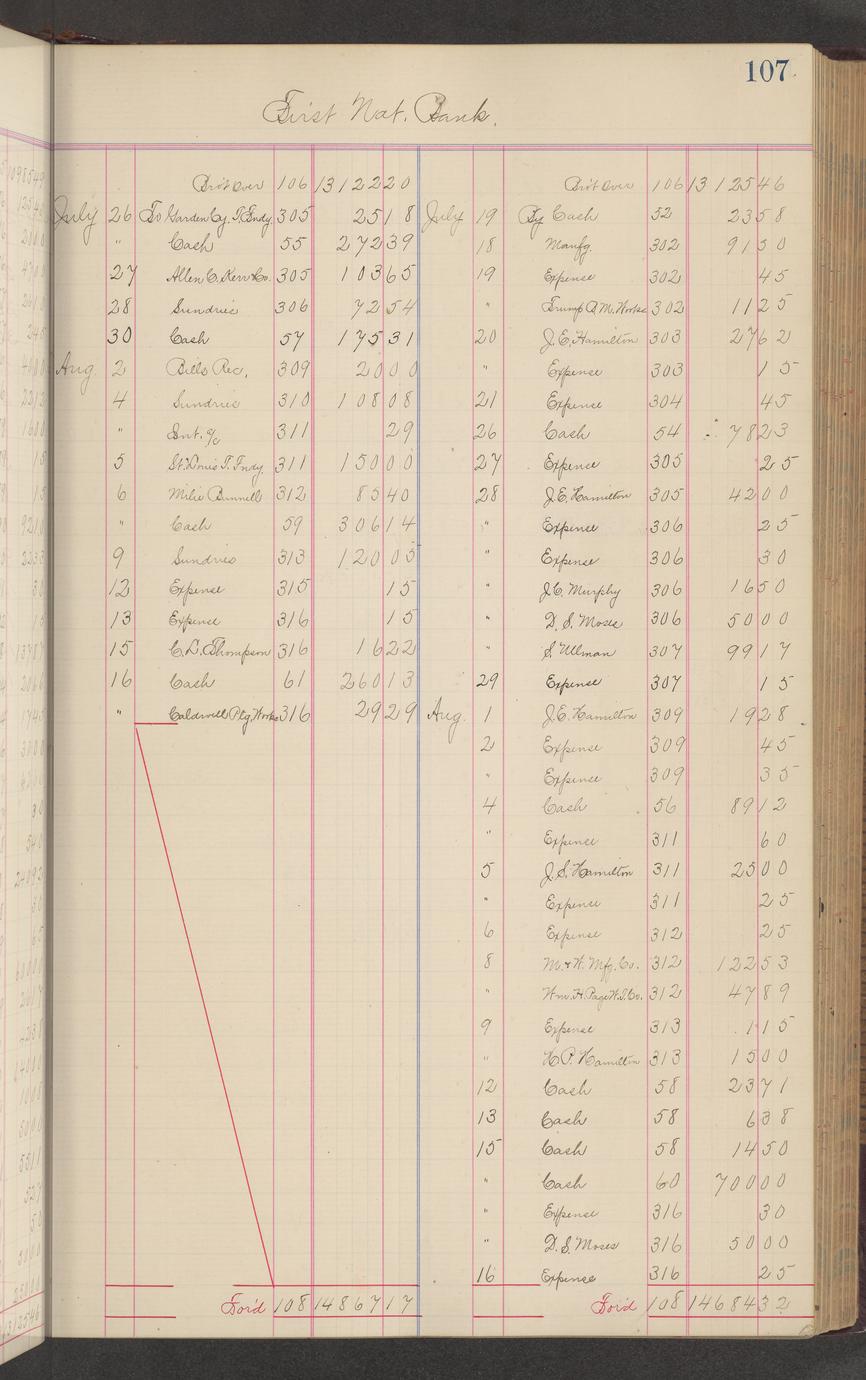 107
First Nat. Bank.
Bro't Over 106 13122 20
July 26 To Garden Cy. T. Fndy. 305 25 18
" Cash 55 272 39
27 Allen C. Kerr & Co. 305 103 65
28 Sundries 306 72 54
30 Cash 57 175 31
Aug 2 Bills Rec. 309 20 00
4 Sundries 310 108 08
" Int. a/c 311 29
5 St. Louis T. Fndy. 311 150 00
6 Milie Bunnell 312 85 40
" Cash 59 306 14
9 Sundries 313 120 05
12 Expense 315 15
13 Expense 316 15
15 C. L. Thompson 316 16 22
16 Cash 61 260 13
" Caldwell Ptg. Works 316 29 29
For'd 108 14867 17
Bro't Over 106 13125 46
July 19 By Cash 52 23 58
18 Manfg. 302 91 50
19 Expense 302 45
" Trump A. M. Works 302 11 25
20 J. E. Hamilton 303 27 62
" Expense 303 15
21 Expense 304 45
26 Cash 54 78 23
27 Expense 305 25
28 J. E. Hamilton 305 42 00
" Expense 306 25
" Expense 306 30
" J. C. Murphy 306 16 50
" D. S. Moses 306 50 00
" S. Ullman 307 99 17
29 Expense 307 15
Aug. 1 J. E. Hamilton 309 19 28
2 Expense 309 45
" Expense 309 35
4 Cash 56 89 12
" Expense 311 60
5 J. S. Hamilton 311 25 00
" Expense 311 25
6 Expense 312 25
8 M. & W. Mfg. Co. 312 122 53
" Wm. H. Page W. T. Co. 312 47 89
9 Expense 313 1 15
" H. P. Hamilton 313 15 00
12 Cash 58 23 71
13 Cash 58 6 38
15 Cash 58 14 50
" Cash 60 700 00
" Expense 316 30
" D. S. Moses 316 50 00
16 Expense 316 25
For'd 108 14684 32